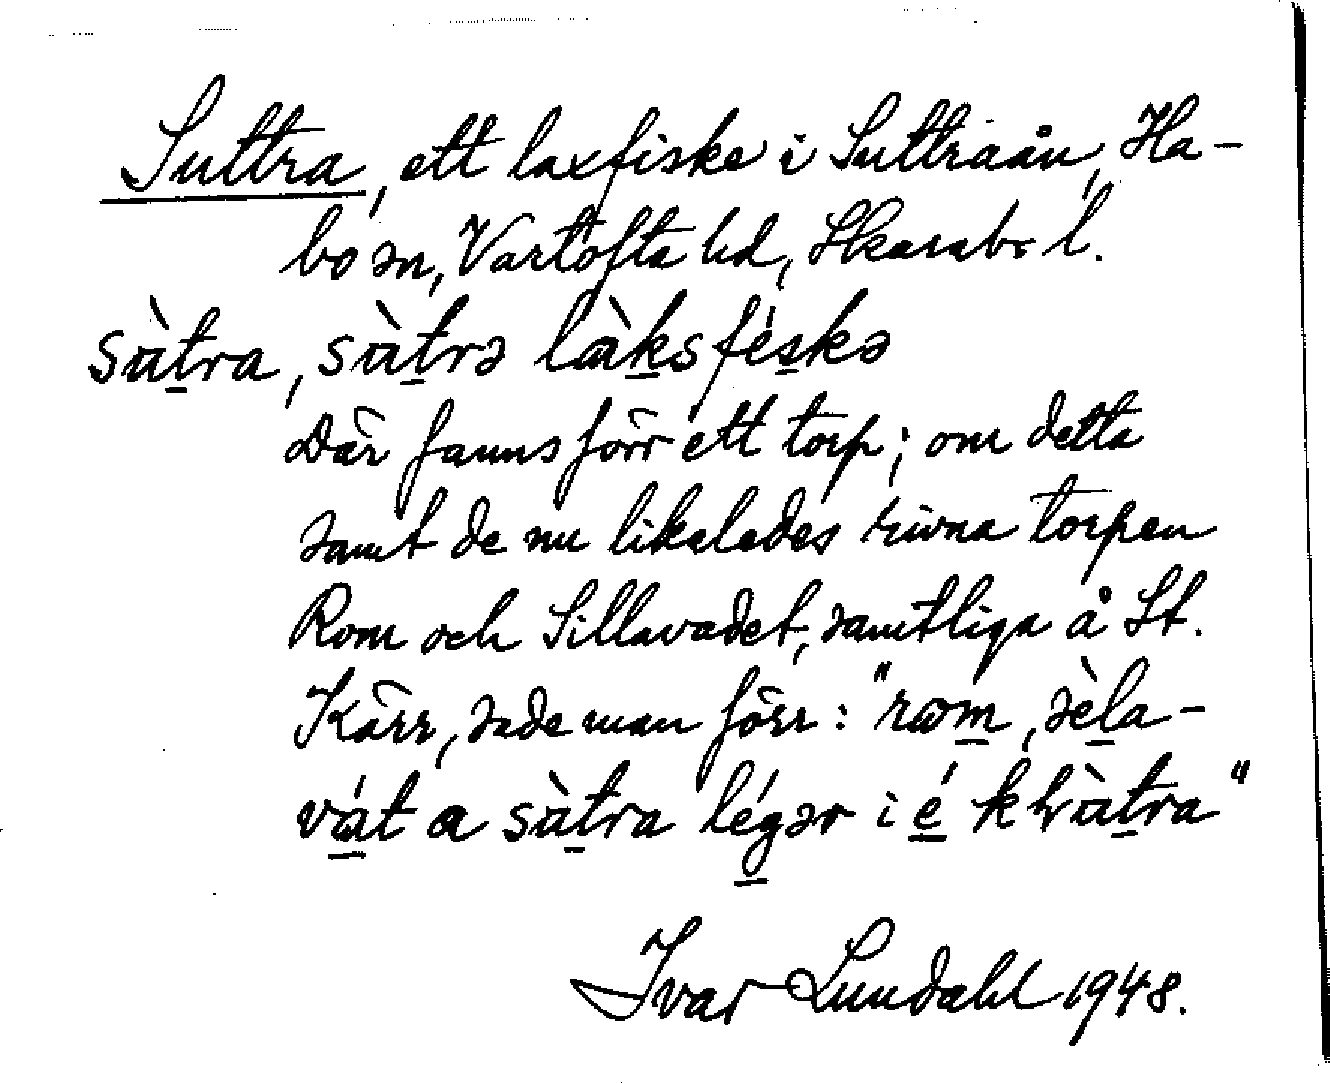 Suttra, ett laxfiske i Suttraån, Ha-
bo sn, Vartofta hd, Skarab. l.
sàt̲ra, sàt̲rə làk̲sfés̲kə
Där fanns förr ett torp; om detta
samt de nu likaledes rivna torpen
Rom och Sillavadet, samtliga å St.
Kärr, sade man förr: "rɷm̲, sèl̲a-
vá̲t a sàt̲ra lég̲ər i é̲ kvàt̲ra"
Ivar Lundahl 1948.